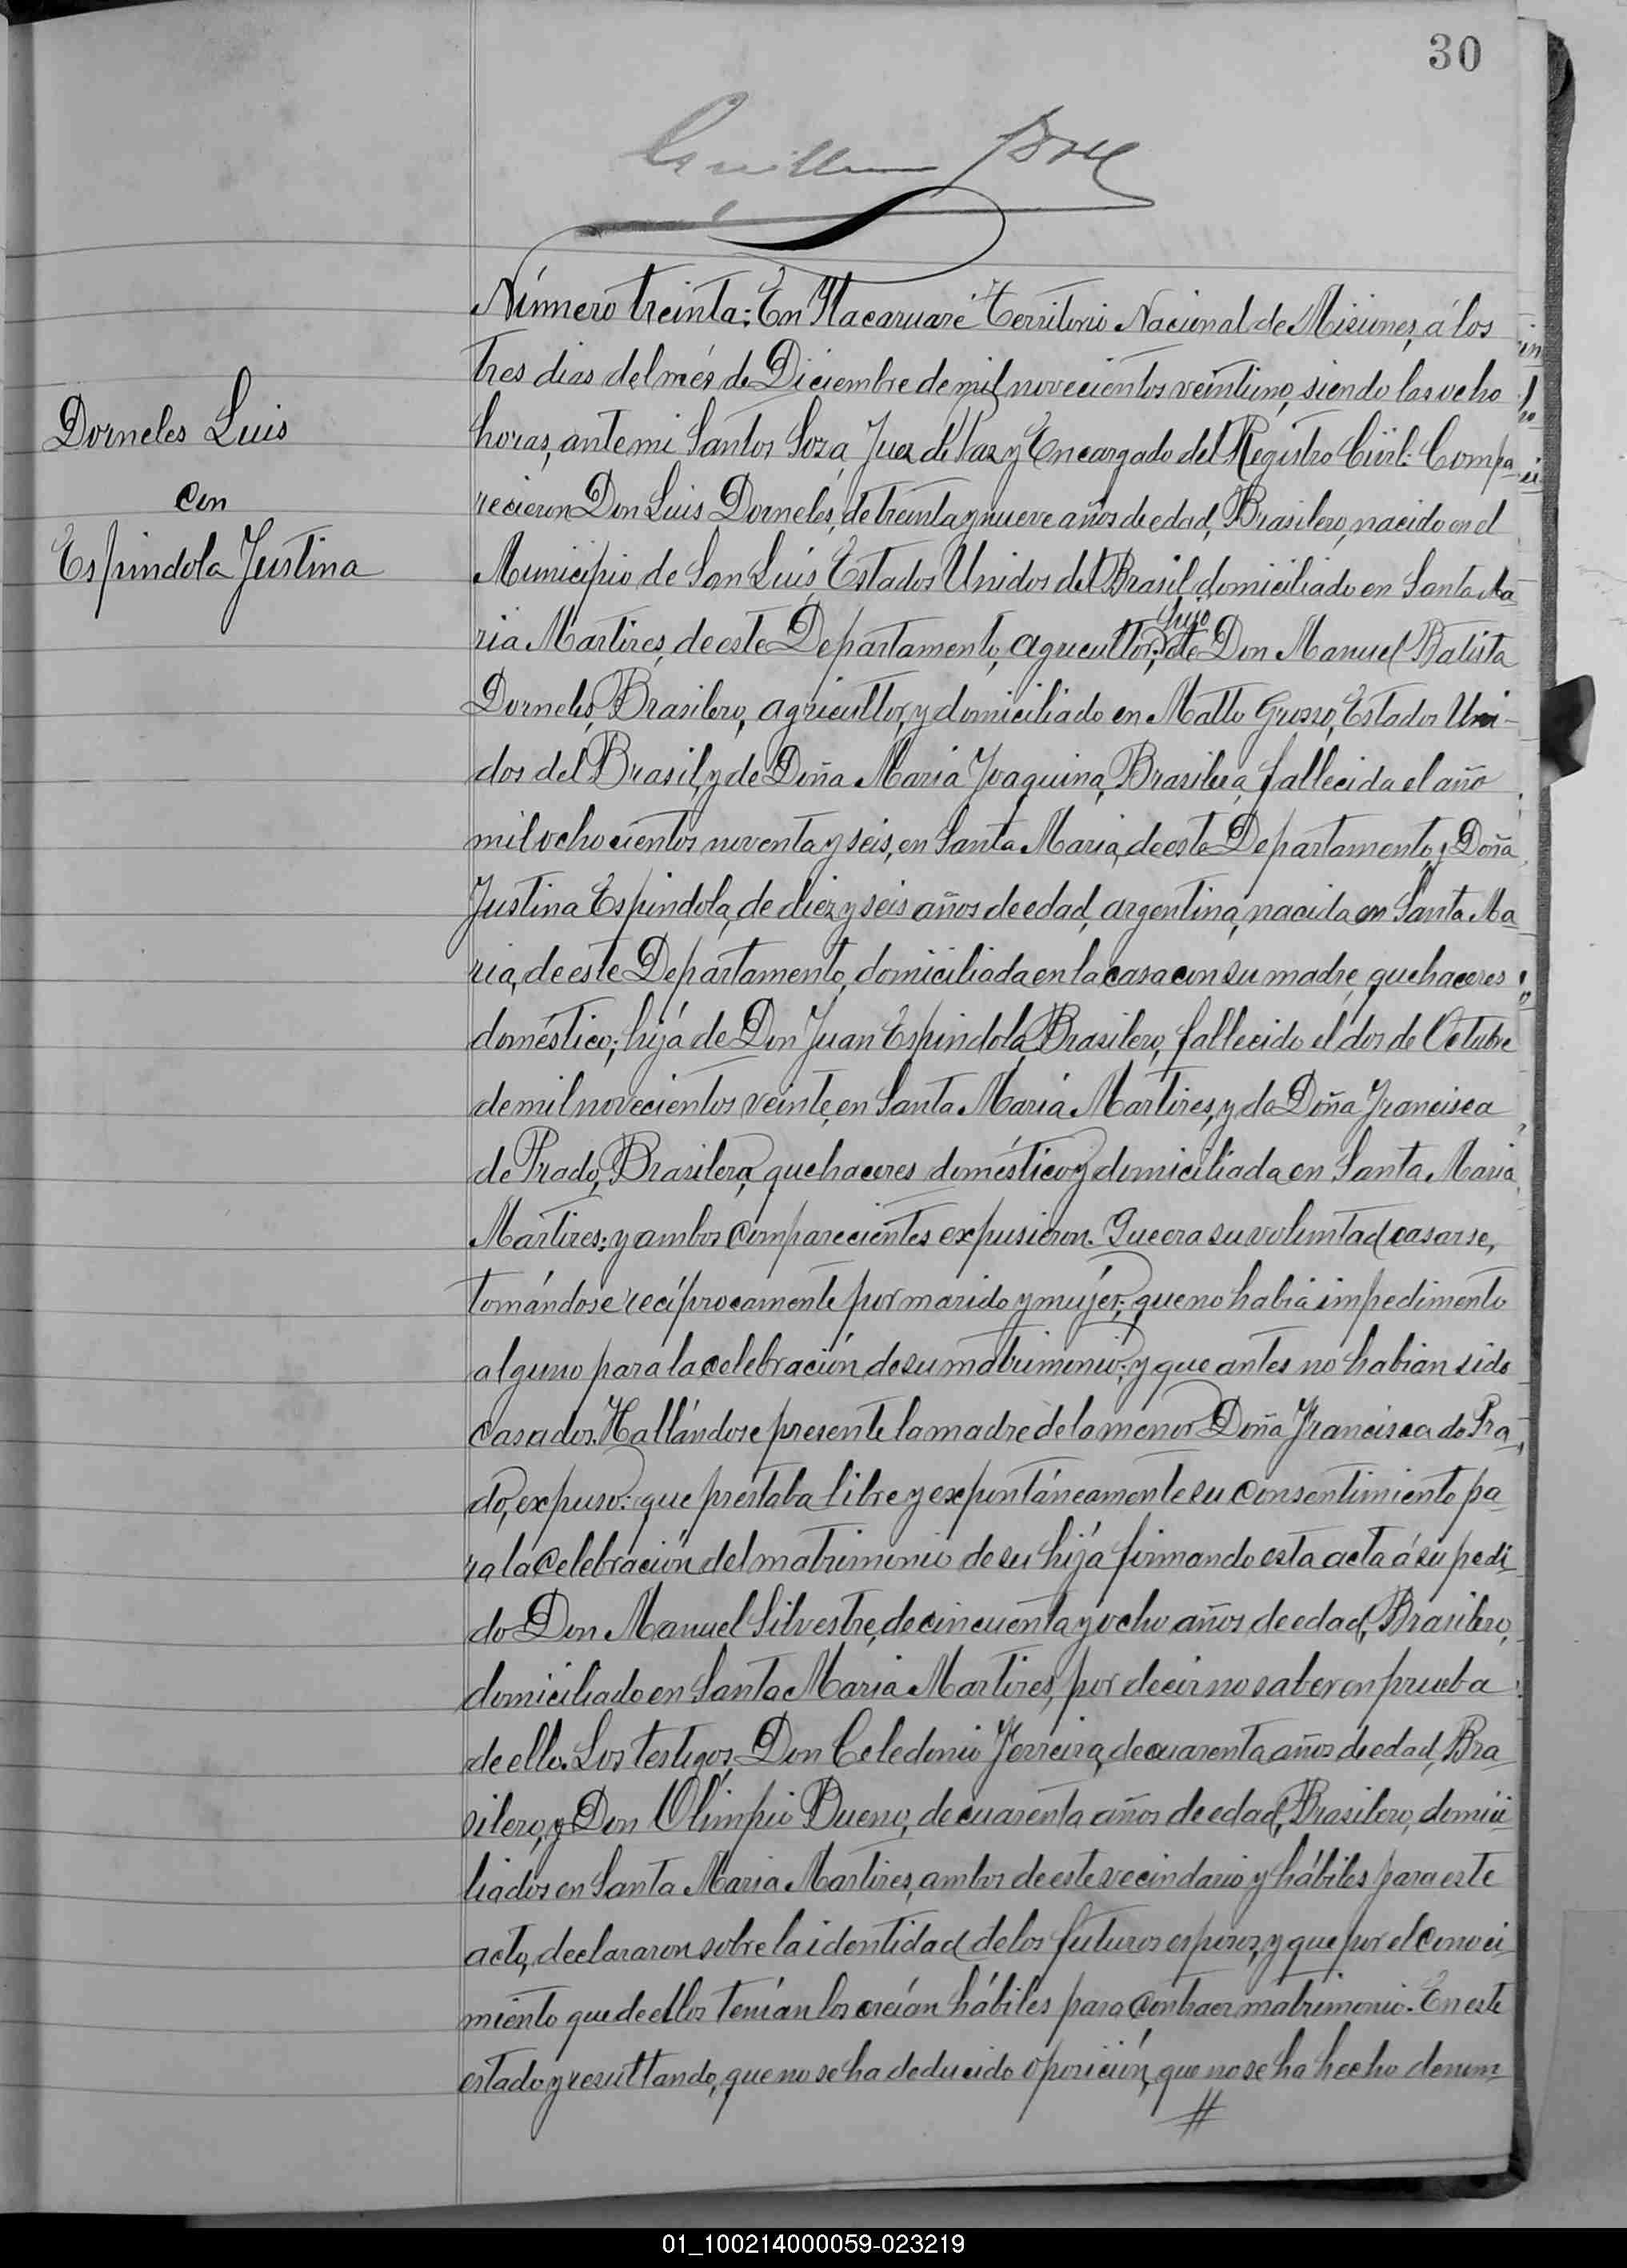 30
Número treinta: En Itacaruaré Territorio Nacional de Misiones, á los
tres dias del més de Diciembre de mil novecientos veintiuno, siendo las ocho
horas, ante mi Santos Sosa, Juez de Paz y Encargado del Registro Civil: Compa-
recieron Don Luis Dorneles, de treinta y nueve años de edad, Brasilero, nacido en el
Municipio de San Luis, Estados Unidos del Brasil, domiciliado en Santa Ma-
hijo
ria Martires, de este Departamento, agricultor; de Don Manuel Batista
Dorneles, Brasilero, agricultor, y domiciliado en Matto Grosso, Estados Uni-
dos del Brasil, y de Doña Maria Joaquina, Brasilera, fallecida el año
mil ochocientos noventa y seis, en Santa Maria, de este Departamento, y Doña
Justina Espindola, de diez y seis años de edad, argentina, nacida en Santa Ma-
ria, de este Departamento, domiciliada en la casa con su madre, quehaceres
doméstico; hijá de Don Juan Espindola, Brasilero, fallecido el dos de Octubre
de mil novecientos veinte, en Santa Maria Martires, y de Doña Francisca
de Prado, Brasilera, quehaceres doméstico y domiciliada en Santa Maria
Martires: y ambos comparecientes expusieron. Que era su voluntad casarse,
tomándose recíprocamente por marido y mujér; que no habia impedimento
alguno para la celebración de su matrimonio; y que antes no habian sido
casados. Hallándose presente la madre de la menor Doña Francisca de Pra-
do, expuso: que prestaba libre y expontáneamente su consentimiento pa-
ra la celebración del matrimonio de su hijá firmando esta acta á su pedi-
do Don Manuel Silvestre, de cincuenta y ocho años de edad, Brasilero,
domiciliado en Santa Maria Martires, por decir no saber en prueba
de ello. Los testigos, Don Celedonio Ferreira, de cuarenta años de edad, Bra-
silero, y Don Olimpio Bueno, de cuarenta años de edad, Brasilero, domici-
liados en Santa Maria Martires, ambos de este vecindario y hábiles para este
acto, declararon sobre la identidad de los futuros esposos, y que por el conoci-
miento que de ellos tenían los creían hábiles para contraer matrimonio. En este
estado y resultando, que no se ha deducido oposición, que no se ha hecho denun-
#
Dorneles Luis
con
Espindola Justina
01_100214000059-023219